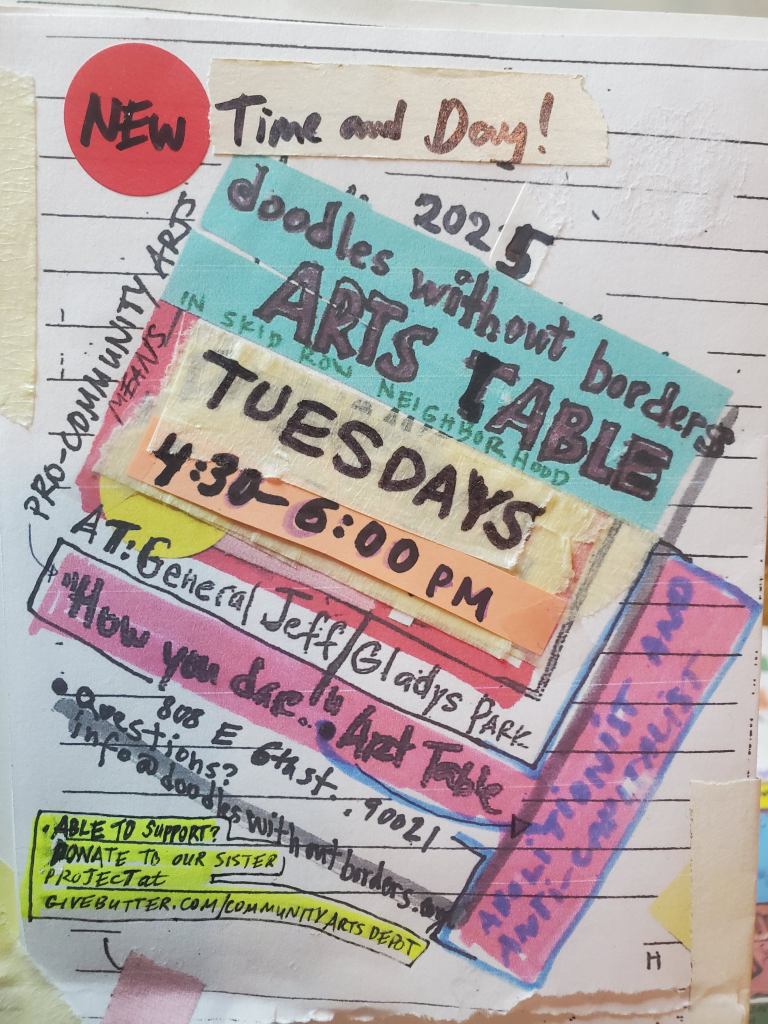 NEW
Time and Day!
2025
doodles without borders
ARTS TABLE
IN SKID ROW NEIGHBORHOOD
TUESDAYS
4:30-6:00 PM
PRO-COMMUNITY ARTS
MEANS
AT: General Jeff/Gladys PARK
"How you dae..."
Art Table
808 E 6th st., 90021
• Questions?
info@doodleswithoutborders.org
ABOLITIONIST AND
ANTI-CAPITALIST
• ABLE TO SUPPORT?
DONATE TO OUR SISTER
PROJECT at
GIVEBUTTER.COM/COMMUNITYARTSDEPOT
H